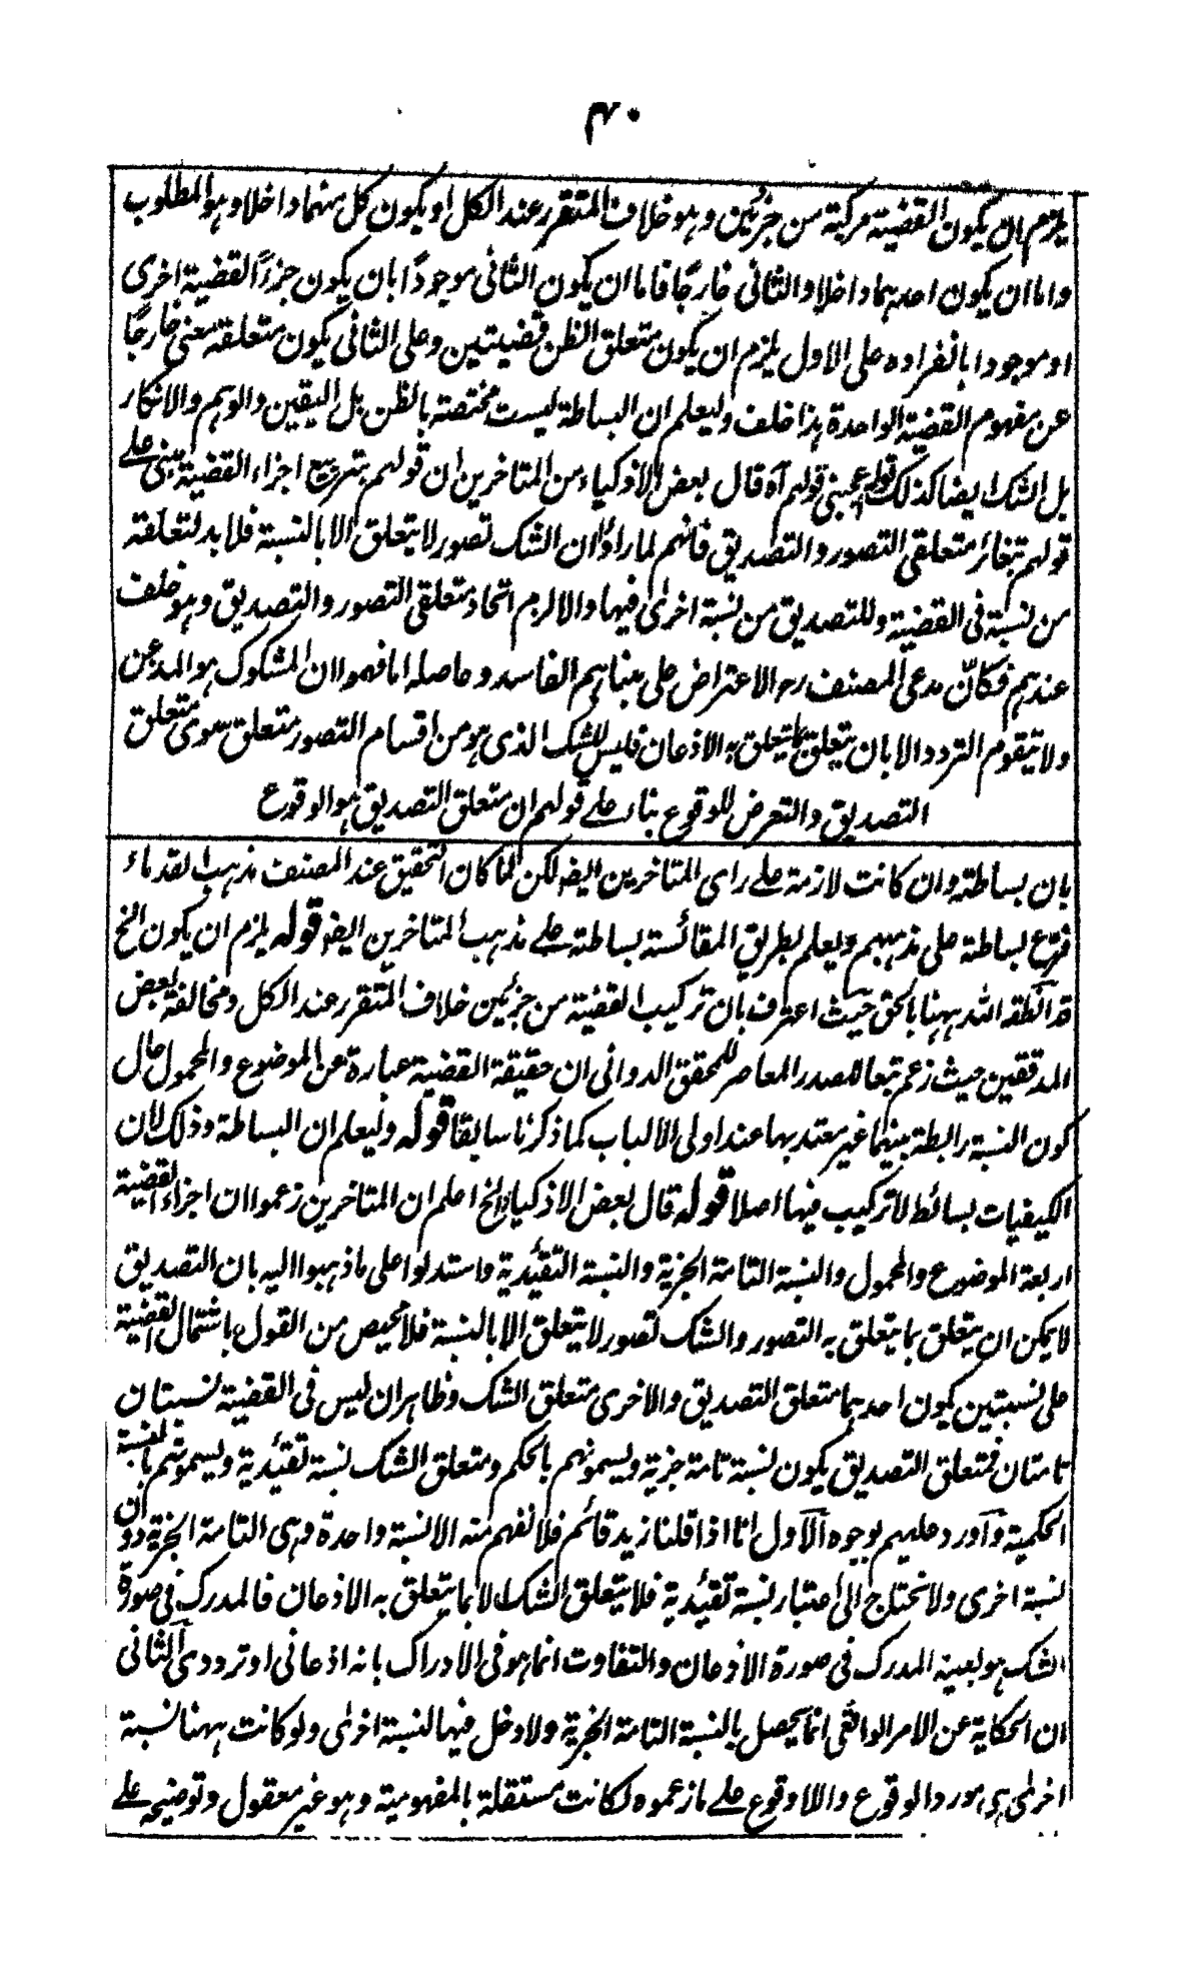 ۴۰
يلزم ان يكون القضية مركبة من جزئين وهو خلاف المتقرر عند الكل او يكون كل منهما داخلا وهو المطلوب
واما ان يكون احدهما داخلا والثانى خارجًا فاما ان يكون الثانى موجودًا بان يكون جزءً القضية اخرى
او موجودا بانفراده على الاول يلزم ان يكون متعلق الظن قضيتين وعلى الثانى يكون متعلقه معنى خارجًا
عن مفهوم القضية الواحدة هذا خلف وليعلم ان البساطة ليست مختصة بالظن بل اليقين والوهم والانكار
بل الشك ايضا كذلك قولهم آه قال بعض الاذكياء من المتاخرين ان قولهم بتربيع اجزاء القضية مبنى على
قولهم بتغائر متعلقى التصور والتصديق فانهم لما راوا ان الشك تصور لا يتعلق الا بالنسبة فلا بد لتعلقه
من نسبة فى القضية وللتصديق من نسبة اخرىٰ فيها والا لزم اتحاد متعلقى التصور والتصديق وهو خلف
عندهم فكانّ مدعى المصنف رح الاعتراض على بنائهم الفاسد وحاصله اما فهموا ان المشكوك هو المذعن
ولا يتقوم التردد الا بان يتعلق بما يتعلق به الاذعان فليس للشك الذى هو من اقسام التصور متعلق سوى متعلق
التصديق والتعرض للوقوع بناء على قولهم ان متعلق التصديق هو الوقوع
بان بساطة وان كانت لازمة على راى المتاخرين ايضا لكن لما كان التحقيق عند المصنف مذهب القدماء
فرّع بساطة على مذهبهم ويعلم بطريق المقائسة بساطة على مذهب المتاخرين ايضا قوله يلزم ان يكون الخ
قد انطقه الله ههنا بالحق حيث اعترف بان تركيب القضية من جزئين خلاف المتقرر عند الكل ومخالفة بعض
المدققين حيث زعم تبعا للصدر المعاصر للمحقق الدوانى ان حقيقة القضية عبارة عن الموضوع والمحمول حال
كون النسبة رابطة بينهما غير معتد بها عند اولى الالباب كما ذكرنا سابقا قوله وليعلم ان البساطة وذلك لان
الكيفيات بسائط لا تركيب فيها اصلا قوله قال بعض الاذكياء الخ اعلم ان المتاخرين زعموا ان اجزاء القضية
اربعة الموضوع والمحمول والنسبة التامة الخبرية والنسبة التقئدية واستدلوا على ما ذهبوا اليه بان التصديق
لا يمكن ان يتعلق بما يتعلق به التصور والشك تصور لا يتعلق الا بالنسبة فلا محيص من القول باشتمال القضية
على نسبتين يكون احدهما متعلق التصديق والاخرى متعلق الشك وظاهر ان ليس فى القضية نسبتان
تامتان فمتعلق التصديق يكون نسبة تامة خبرية ويسمونهم بالحكم ومتعلق الشك نسبة تقئدية ويسمونهم بالنسبة
الحكمية وآورد عليهم بوجوه الآول انا اذا قلنا زيد قائم فلا نفهم منه الا نسبة واحدة وهى التامة الخبرية دون
نسبة اخرى ولا نحتاج الى اعتبار نسبة تقئدية فلا يتعلق الشك الا بما يتعلق به الاذعان فالمدرك فى صورة
الشك هو بعينه المدرك فى صورة الاذعان والتفاوت انما هو فى الادراك بانه اذعانى او ترددى آلثانى
ان الحكاية عن الامر الواقعى انما يحصل بالنسبة التامة الخبرية ولا دخل فيها لنسبة اخرىٰ ولو كانت ههنا نسبة
اخرىٰ هى مورد الوقوع واللاوقوع على ما زعموه لكانت مستقلة بالمفهومية وهو غير معقول وتوضيحه على